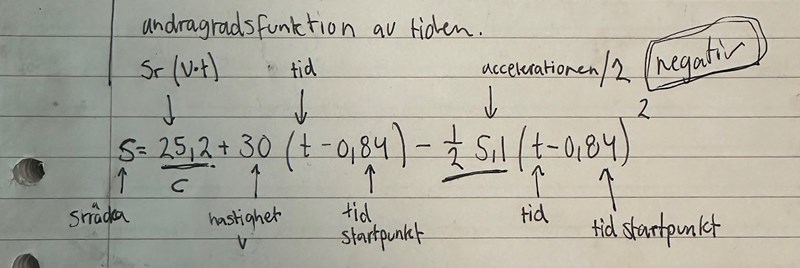 andragradsfunktion av tiden.
Sr (v·t) tid accelerationen/2 negativ
S = 25,2 + 30 (t - 0,84) - 1/2 5,1 (t - 0,84)²
sträcka c hastighet v tid startpunkt tid tid startpunkt